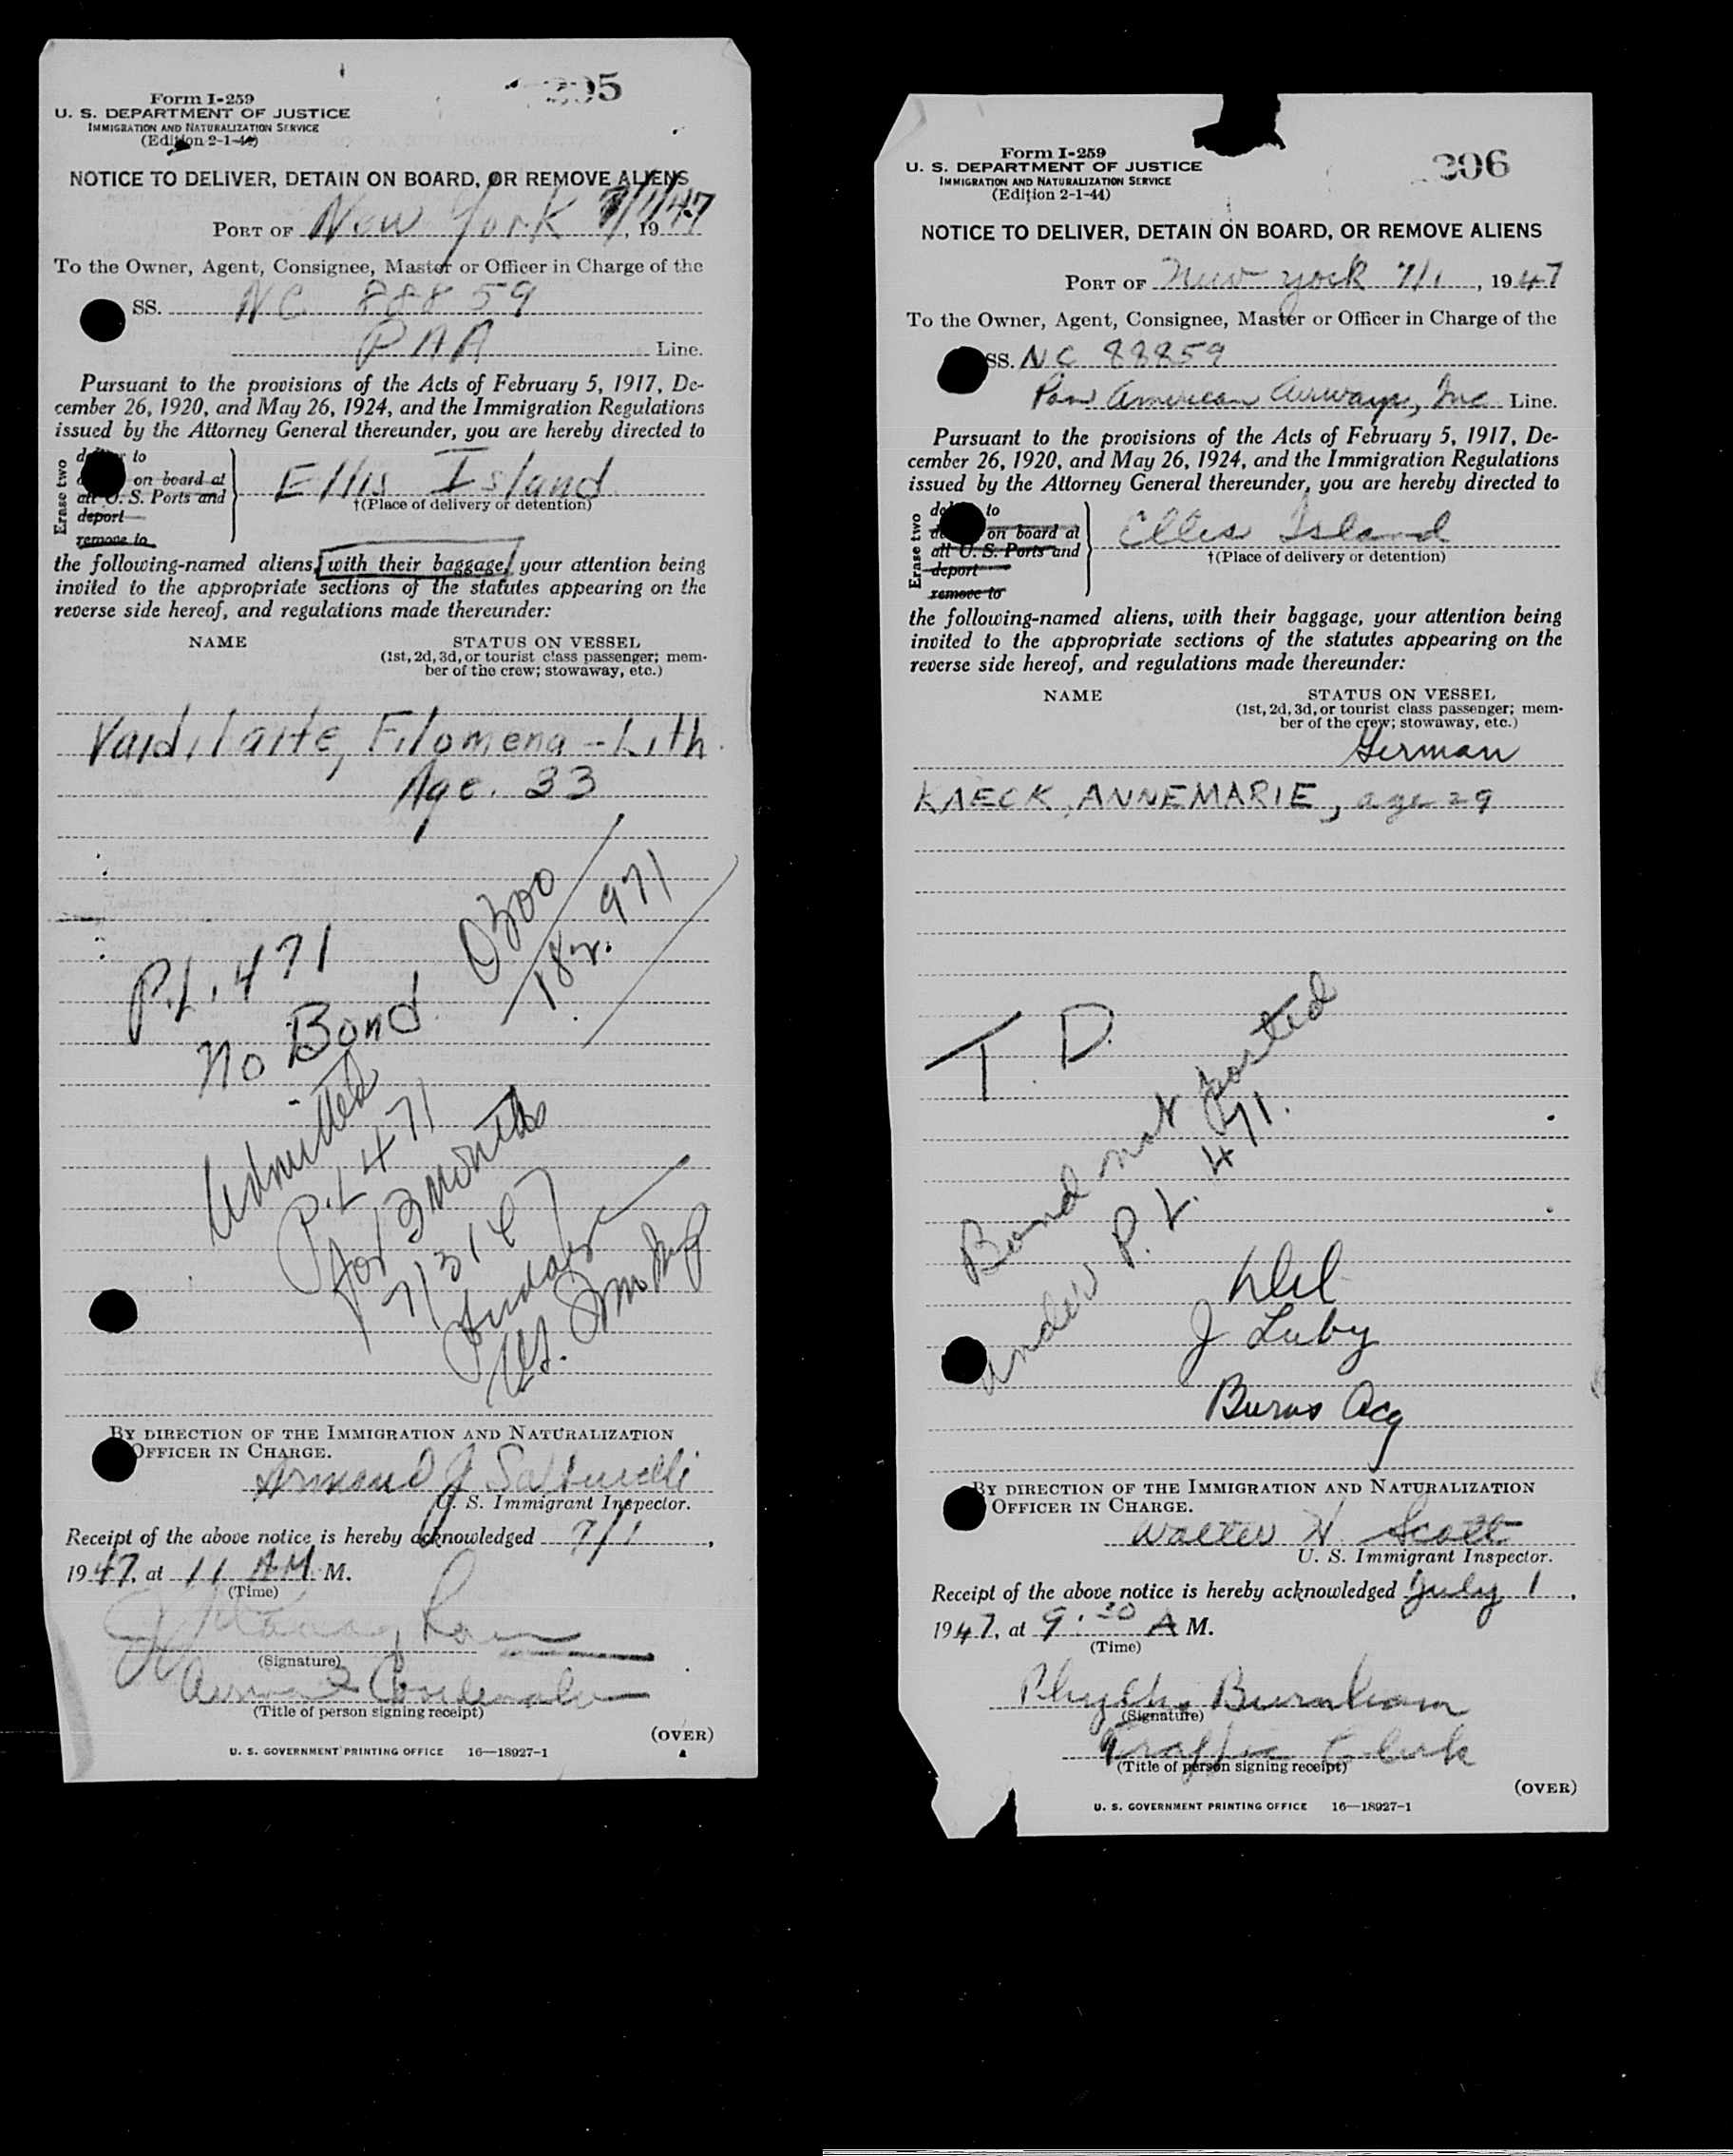 395
Form I-259
U. S. DEPARTMENT OF JUSTICE
IMMIGRATION AND NATURALIZATION SERVICE
(Edition 2-1-44)
NOTICE TO DELIVER, DETAIN ON BOARD, OR REMOVE ALIENS
PORT OF New York 7/1/47, 1947
To the Owner, Agent, Consignee, Master or Officer in Charge of the
SS. NC 88859
PAA Line.
Pursuant to the provisions of the Acts of February 5, 1917, De-
cember 26, 1920, and May 26, 1924, and the Immigration Regulations
issued by the Attorney General thereunder, you are hereby directed to
Erase two
to
on board at
all U. S. Ports and
deport
remove to
Ellis Island
†(Place of delivery or detention)
the following-named aliens, with their baggage, your attention being
invited to the appropriate sections of the statutes appearing on the
reverse side hereof, and regulations made thereunder:
NAME STATUS ON VESSEL
(1st, 2d, 3d, or tourist class passenger; mem-
ber of the crew; stowaway, etc.)
Vaidilaite, Filomena - Lith.
Age. 33
0300
182.971
P.L. 471
No Bond
Admitted
P.L 471
for 3 months
7/3/47
BY DIRECTION OF THE IMMIGRATION AND NATURALIZATION
OFFICER IN CHARGE.
Armand J
U. S. Immigrant Inspector.
Receipt of the above notice is hereby acknowledged 7/1,
1947, at 11 AM. M.
(Time)
(Signature)
(Title of person signing receipt)
(OVER)
U. S. GOVERNMENT PRINTING OFFICE 16—18927-1
396
Form I-259
U. S. DEPARTMENT OF JUSTICE
IMMIGRATION AND NATURALIZATION SERVICE
(Edition 2-1-44)
NOTICE TO DELIVER, DETAIN ON BOARD, OR REMOVE ALIENS
PORT OF New York 7/1, 1947
To the Owner, Agent, Consignee, Master or Officer in Charge of the
SS. NC 88859
Pan American Airways, Inc Line.
Pursuant to the provisions of the Acts of February 5, 1917, De-
cember 26, 1920, and May 26, 1924, and the Immigration Regulations
issued by the Attorney General thereunder, you are hereby directed to
Erase two
to
on board at
all U. S. Ports and
deport
remove to
Ellis Island
†(Place of delivery or detention)
the following-named aliens, with their baggage, your attention being
invited to the appropriate sections of the statutes appearing on the
reverse side hereof, and regulations made thereunder:
NAME STATUS ON VESSEL
(1st, 2d, 3d, or tourist class passenger; mem-
ber of the crew; stowaway, etc.)
German
KAECK, ANNEMARIE, age 29
T. D.
Bond not posted
under P.L. 471.
Del
J Luby
Burns Acq
BY DIRECTION OF THE IMMIGRATION AND NATURALIZATION
OFFICER IN CHARGE.
Walter H Scott
U. S. Immigrant Inspector.
Receipt of the above notice is hereby acknowledged July 1,
1947, at 9:30 A M.
(Time)
Burnham
(Signature)
Traffic Clerk
(Title of person signing receipt)
(OVER)
U. S. GOVERNMENT PRINTING OFFICE 16—18927-1